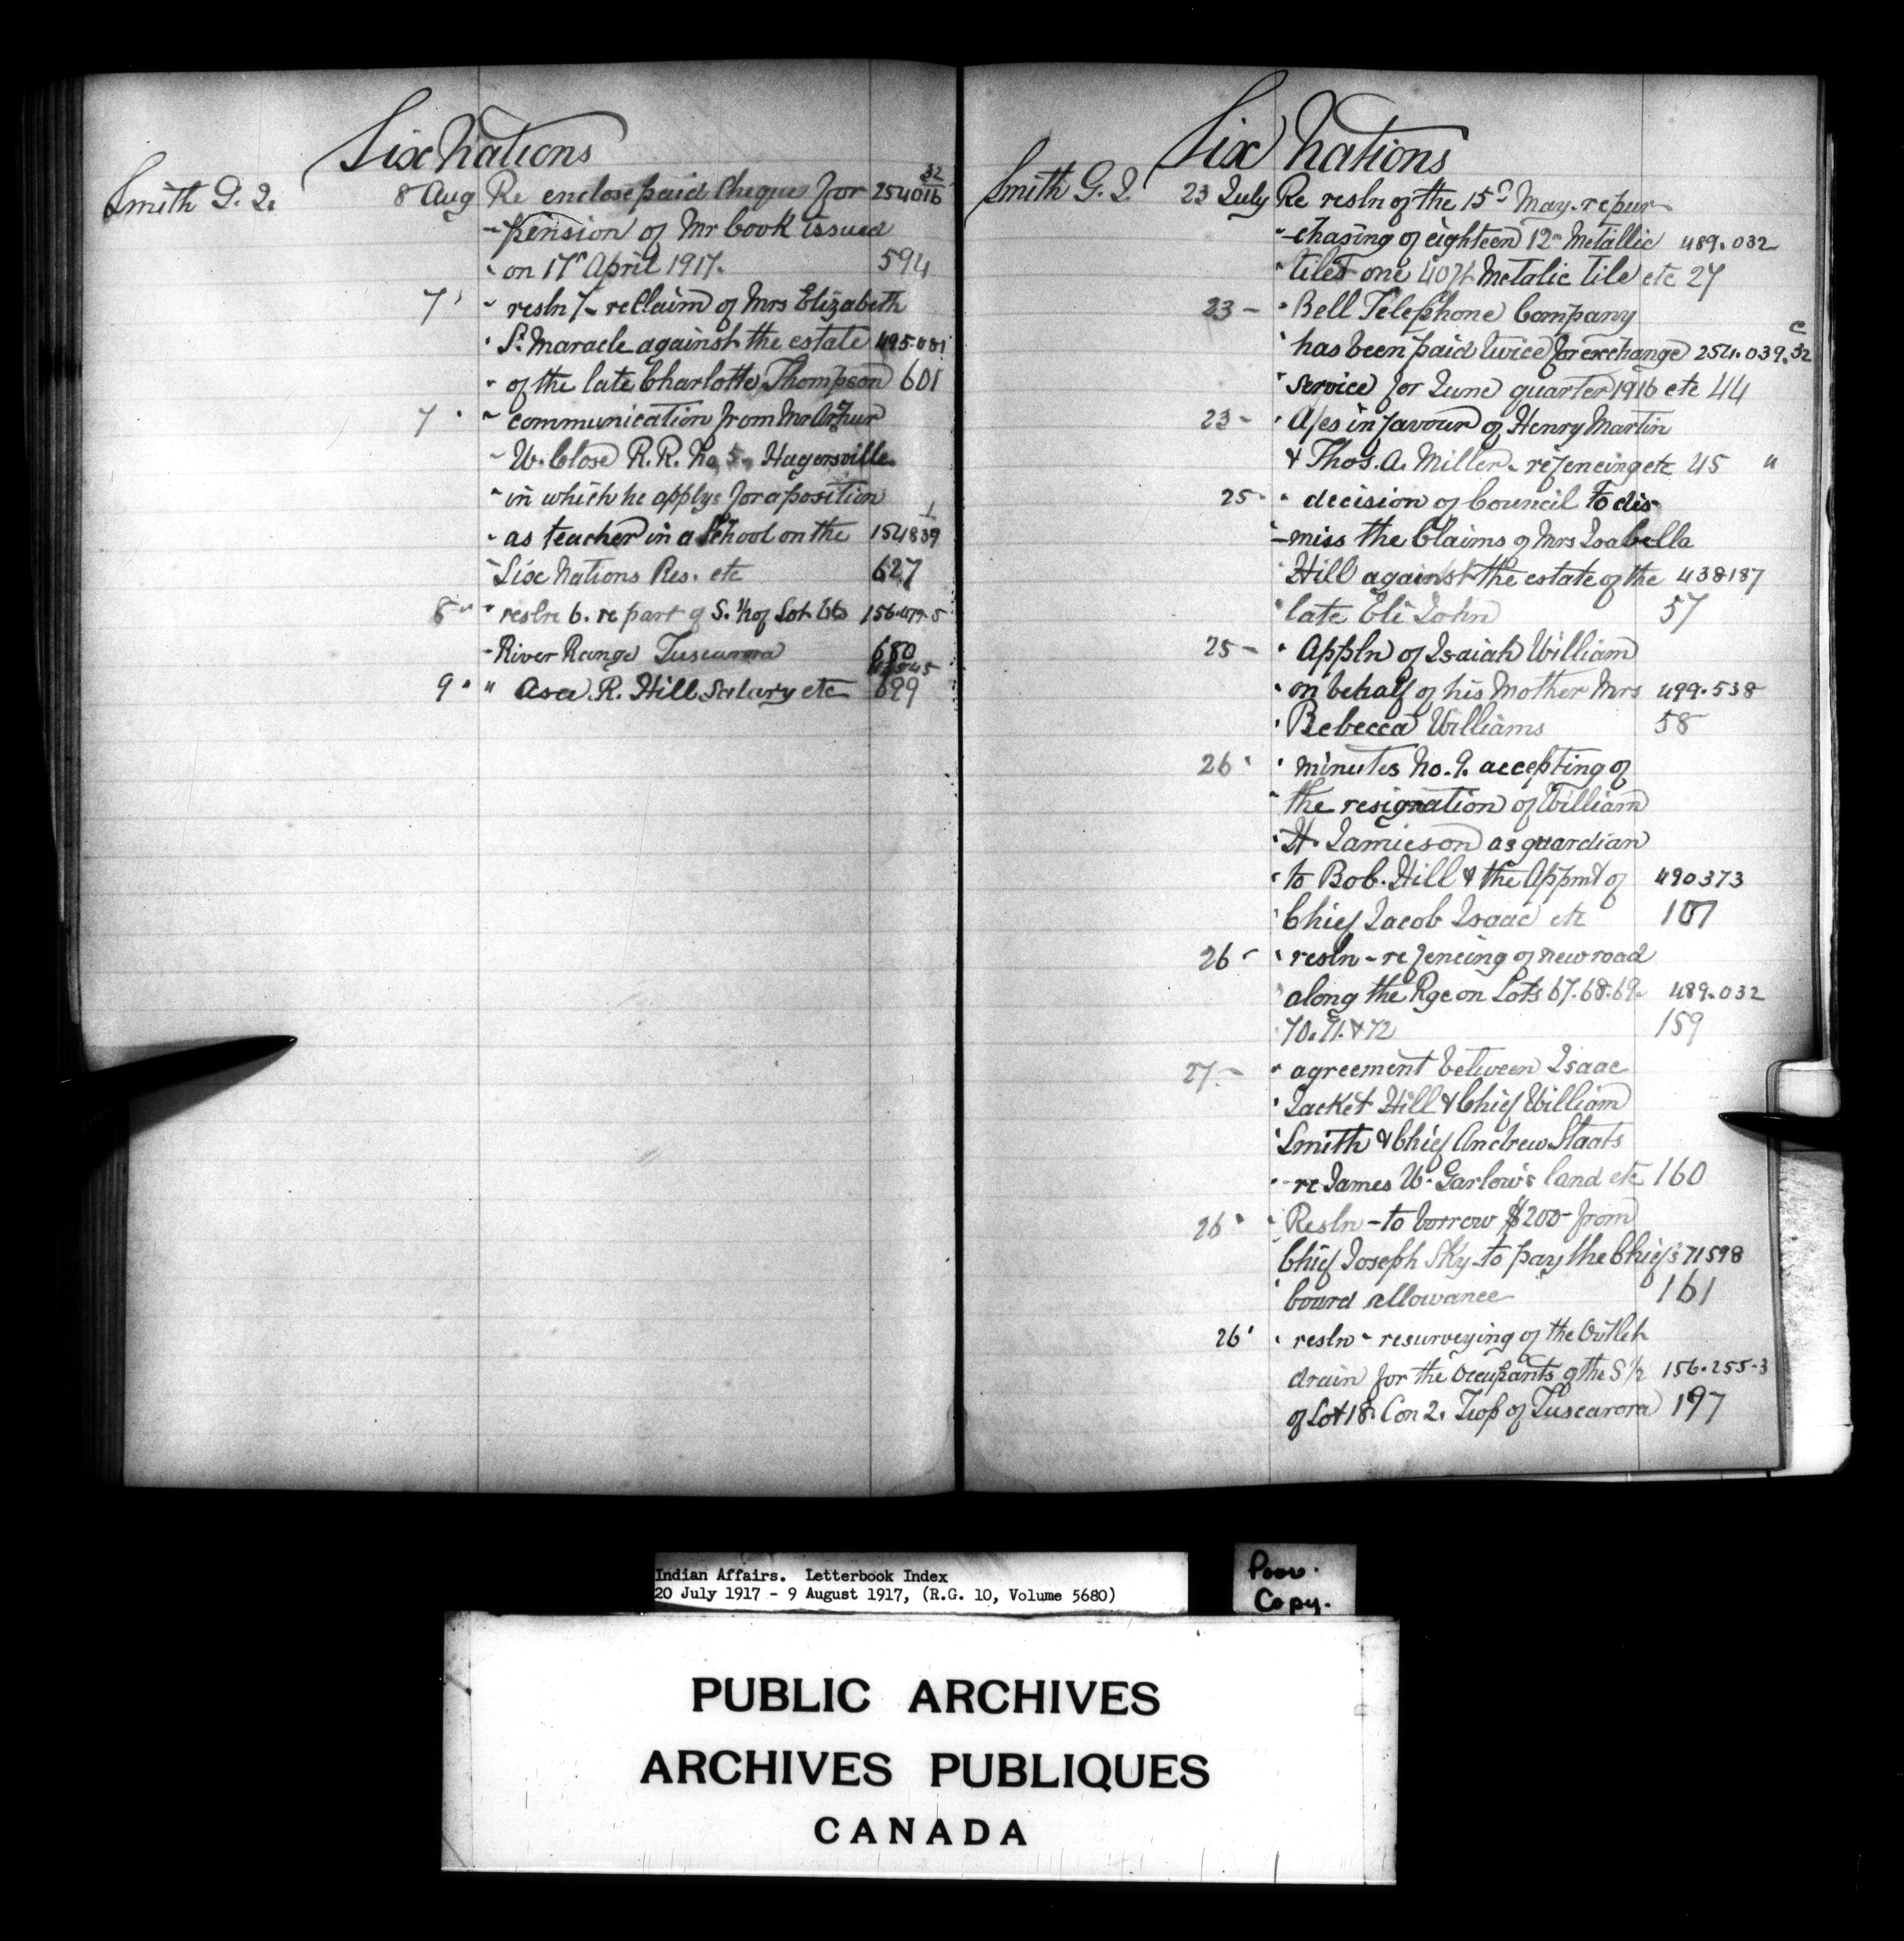 Six Nations
Smith G. J. 8 Aug Re enclose paid Cheque for 254016 32
" pension of Mr Cook issued
" on 17th April 1917. 594
7 " " resln 7 - re Claim of Mrs Elizabeth
" S. Maracle against the estate 495.081
" of the late Charlotte Thompson 601
7 " " communication from Mr Arthur
" W. Close R.R. No 5 - Hagersville
" in which he applys for a position
" as teacher in a School on the 154839 1
" Six Nations Res. etc 627
8 " " resln 6. re part of S. 1/2 of Lot 66 156.479-5
" River Range Tuscarora 680
9 " " Asa. R. Hill Salary etc 699
Six Nations
Smith G. J. 23 July Re resln of the 15th May - re pur-
" -chasing of eighteen 12" Metallic 489.032
" tiles one 40 ft Metalic tile etc 27
23 - " Bell Telephone Company
" has been paid twice for exchange 254.039.32 C
" service for June quarter 1916 etc 44
23 - " A/cs in favour of Henry Martin
& Thos. A. Miller - re fencing etc 45 "
25 - " decision of Council to dis-
-miss the Claims of Mrs Isabella
" Hill against the estate of the 438187
" late Eli John 57
25 - " Appln of Isaiah William
" on behalf of his Mother Mrs 499.538
" Rebecca Williams 58
26 " " minutes No. 9. accepting of
" the resignation of William
" H. Jamieson as guardian
" to Bob. Hill & the Appmt of 490373
" Chief Jacob Isaac etc 107
26 - " resln - re fencing of new road
" along the Rge on Lots 67.68.69. 489.032
" 70. 71. & 72 159
27 - " agreement between Isaac
" Jacket Hill & Chief William
" Smith & Chief Andrew Staats
" re James W. Garlow's land etc 160
26 " " Resln - to borrow $200 - from
Chief Joseph Sky - to pay the Chiefs 71598
" board allowance 161
26 " " resln - resurveying of the Outlet
drain for the Occupants of the S 1/2 156.255-3
of Lot 18. Con 2. Twp of Tuscarora 197
Indian Affairs. Letterbook Index
20 July 1917 - 9 August 1917, (R.G. 10, Volume 5680)
Poor
Copy.
PUBLIC ARCHIVES
ARCHIVES PUBLIQUES
CANADA